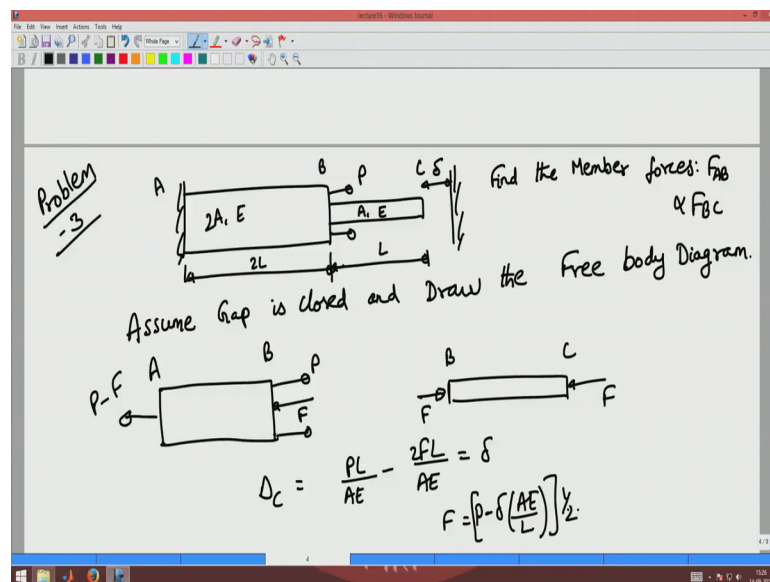 lecture16 - Windows Journal
File Edit View Insert Actions Tools Help
Whole Page
B I
Problem
-3
A B P C δ
2A, E A, E
2L L
Find the Member forces: FAB
& FBC
Assume Gap is closed and Draw the Free body Diagram.
P-F A B P F
B C F F
Δc = PL/AE - 2FL/AE = δ
F = [P-δ(AE/L)]1/2.
4
4/9
15:26